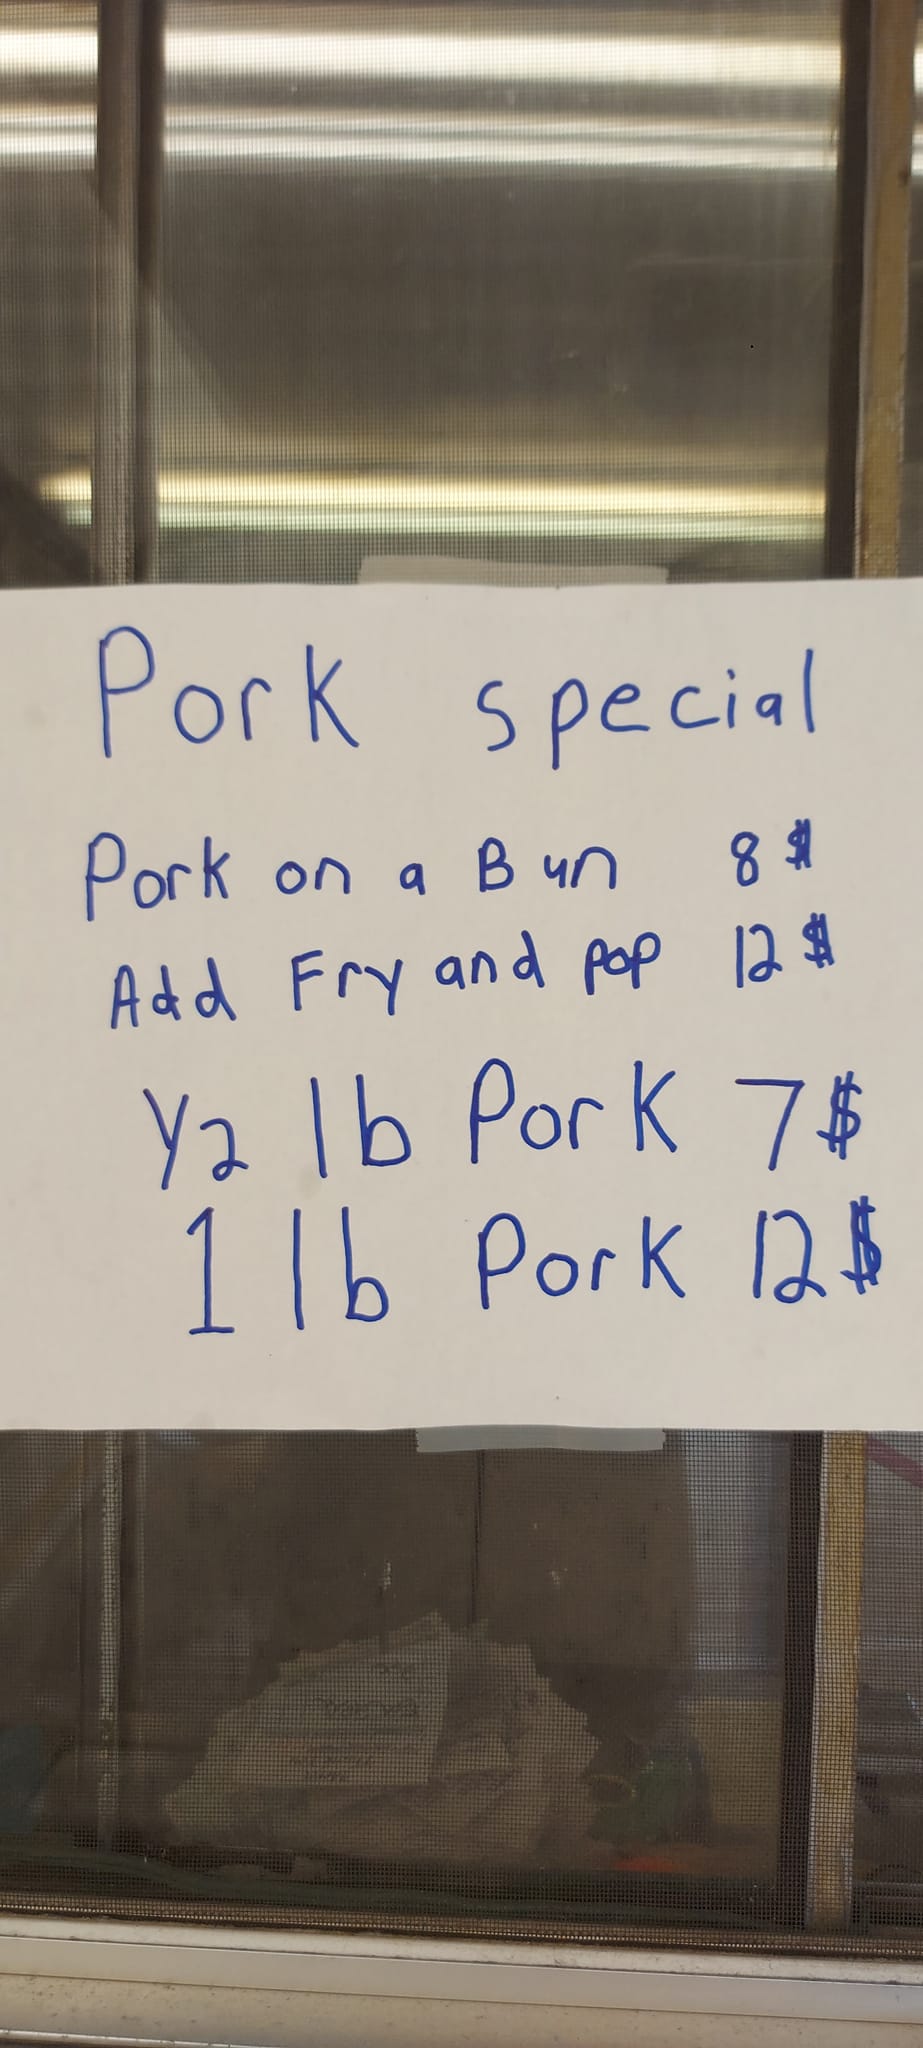 Pork special
Pork on a Bun 8$
Add Fry and pop 12$
1/2 lb Pork 7$
1 lb Pork 12$